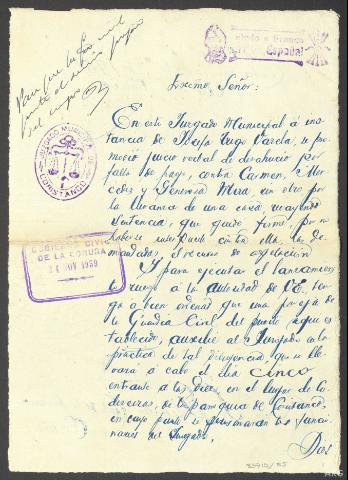 Para que la Gua civil
Saludo a Franco
¡Arriba España!
Excmo. Señor:
JUZGADO MUNICIPAL DE
CORISTANCO
GOBIERNO CIVIL
DE LA CORUÑA
24 NOV 1939
En este Juzgado Municipal á ins
tancia de Josefa Pugo Varela, se pro-
movió juicio verbal de desahucio por
falta de pago, contra Carmen, Mer-
cedes y Generosa Mira, en otro por
la tenencia de una casa recayendo
sentencia, que quedó firme, por no
haberse interpuesto contra ella, las de-
mandadas, el recurso de apelación
Y para ejecutar el lanzamiento
le ruego á la autoridad de V.E. ten-
ga á bien ordenar que una pareja de
la Guardia Civil del puesto aqui es-
tablecido, auxilie al Juzgado en la
práctica de tal diligencia que se lle-
vará á cabo el día cinco
entrante a las diez, en el lugar de
de la parroquia de Coristanco,
en cuyo punto se personarán los funcio-
narios del Juzgado.
Dos